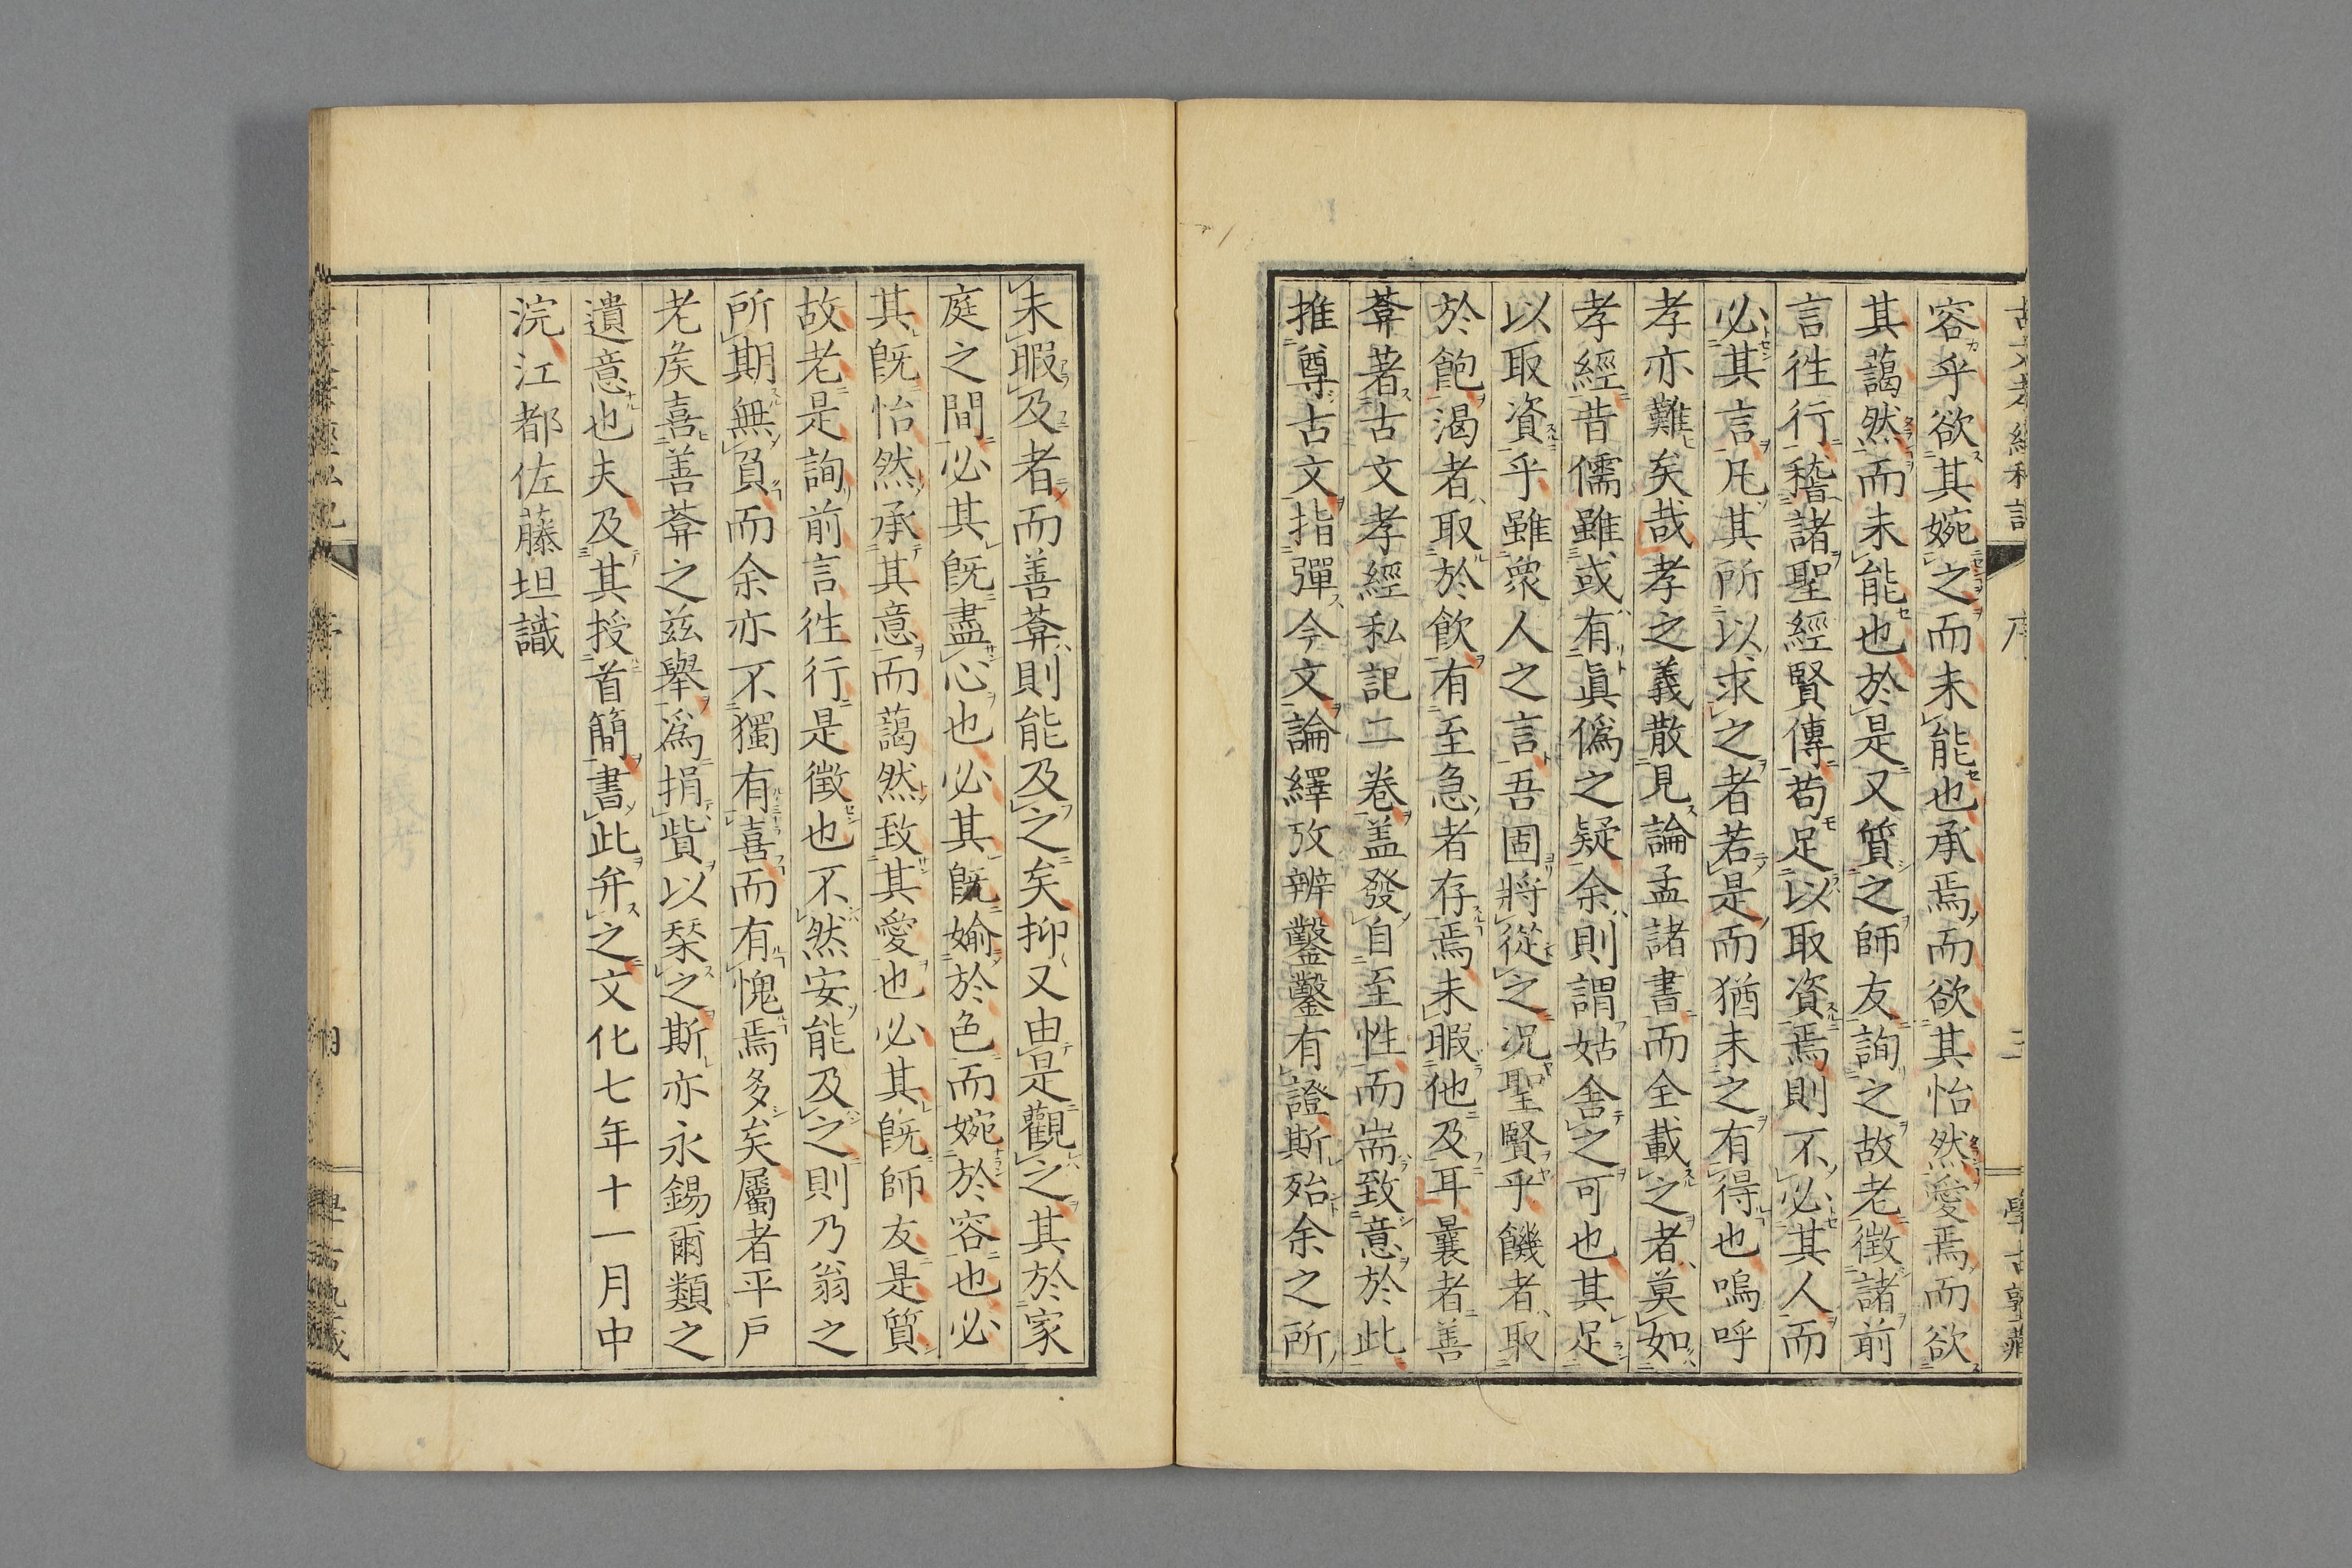 容乎欲其婉之而未能也承焉而欲其怡然愛焉而欲
其藹然而未能也於是又質之師友詢之故老徴諸前
言徃行稽諸聖經賢傳苟足以取資焉則不必其人而
必其言凡其所以求之者若是而猶未之有得也嗚呼
孝亦難矣哉孝之義散見論孟諸書而全載之者莫如
孝經昔儒雖或有眞僞之疑余則謂姑舍之可也其足
以取資乎雖衆人之言吾固將從之况聖賢乎饑者取
於飽渇者取於飲有至急者存焉未暇他及耳曩者善
葊著古文孝經私記二卷盖發自至性而耑致意於此
推尊古文指彈今文論繹攷辨鑿鑿有證斯殆余之所
未暇及者而善葊則能及之矣抑又由是觀之其於家
庭之間必其既盡心也必其既婾於色而婉於容也必
其既怡然承其意而藹然致其愛也必其既師友是質
故老是詢前言徃行是徴也不然安能及之則乃翁之
所期無負而余亦不獨有喜而有愧焉多矣屬者平戸
老矦喜善葊之兹舉爲捐貲以栞之斯亦永錫爾類之
遺意也夫及其授首簡書此弁之文化七年十一月中
浣江都佐藤坦識